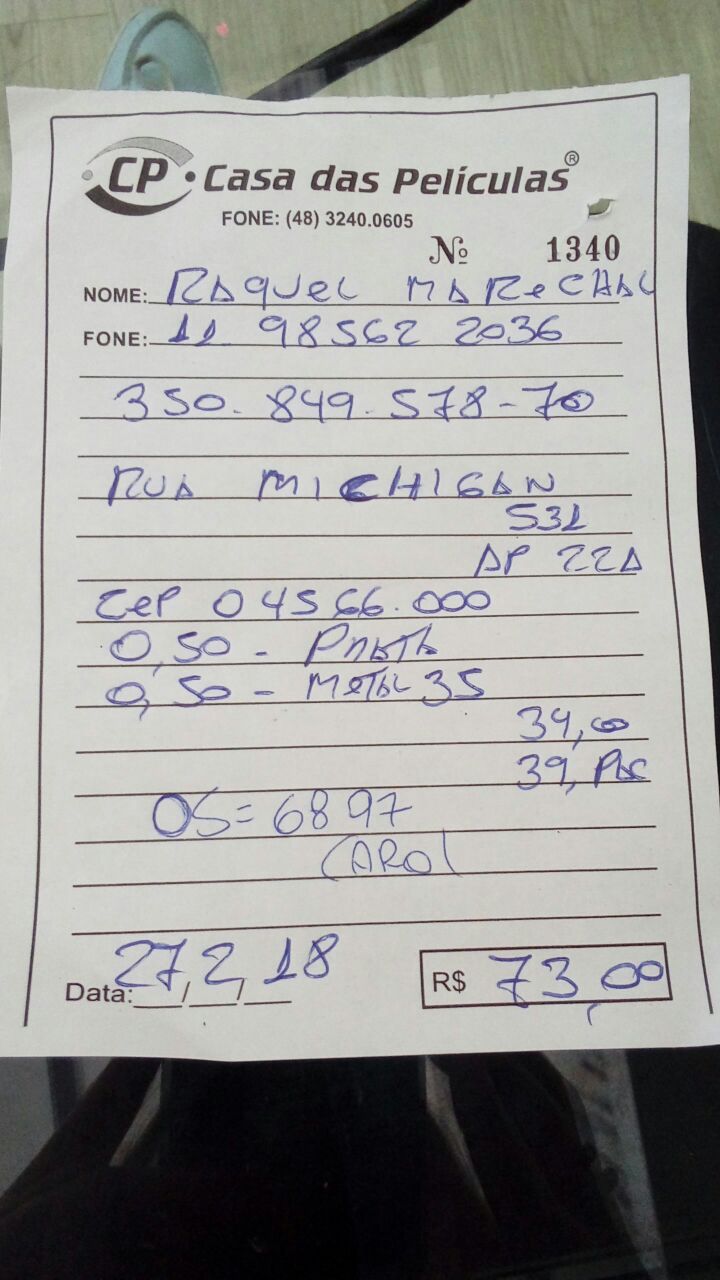 CP Casa das Películas®
FONE: (48) 3240.0605
Nº 1340
NOME: RAQUEL MARECHAL
FONE: 11 98562 2036
350.849.578-70
RUA MICHIGAN
531
AP 22A
CEP 04566.000
0,50 - PRATA
0,50 - METAL 35
34,00
39, PAC
OS=6897
CAROL
Data: 27/2/18
R$ 73,00